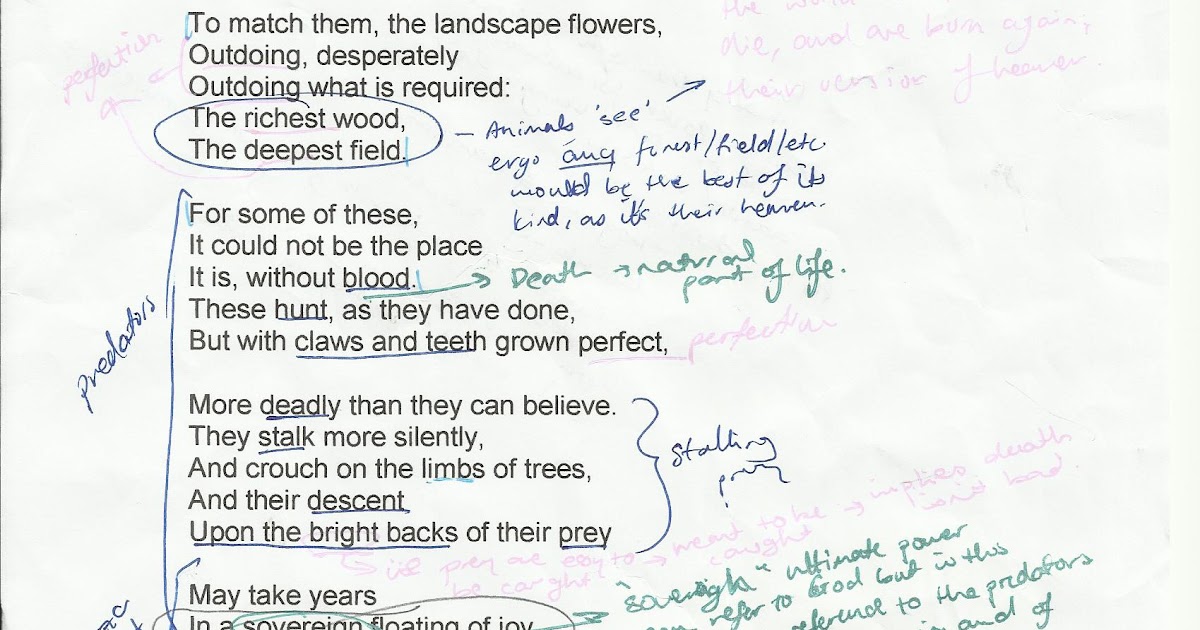 To match them, the landscape flowers,
Outdoing, desperately
Outdoing what is required:
The richest wood,
The deepest field.
perfection
die, and are born again,
their version of heaven.
– Animals 'see'
ergo any forest/field/etc.
would be the best of its
kind, as it's their heaven.
predators
For some of these,
It could not be the place
It is, without blood.
Death → natural
part of life.
These hunt, as they have done,
But with claws and teeth grown perfect,
perfection
More deadly than they can believe.
They stalk more silently,
And crouch on the limbs of trees,
And their descent
Upon the bright backs of their prey
Stalking
prey
prey are easy to → meant to be → implies death
be caught
caught
isn't bad.
May take years
In a sovereign floating of joy
"sovereign" ultimate power
refer to God but is this
reference to the predators
and of